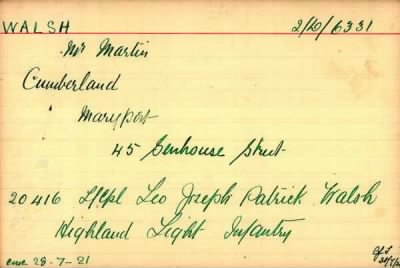 WALSH 2/L0/6331
Mr Martin
Cumberland
Maryport
45 Senhouse Street
20416 L/Cpl Leo Joseph Patrick Walsh
Highland Light Infantry
28.7-21